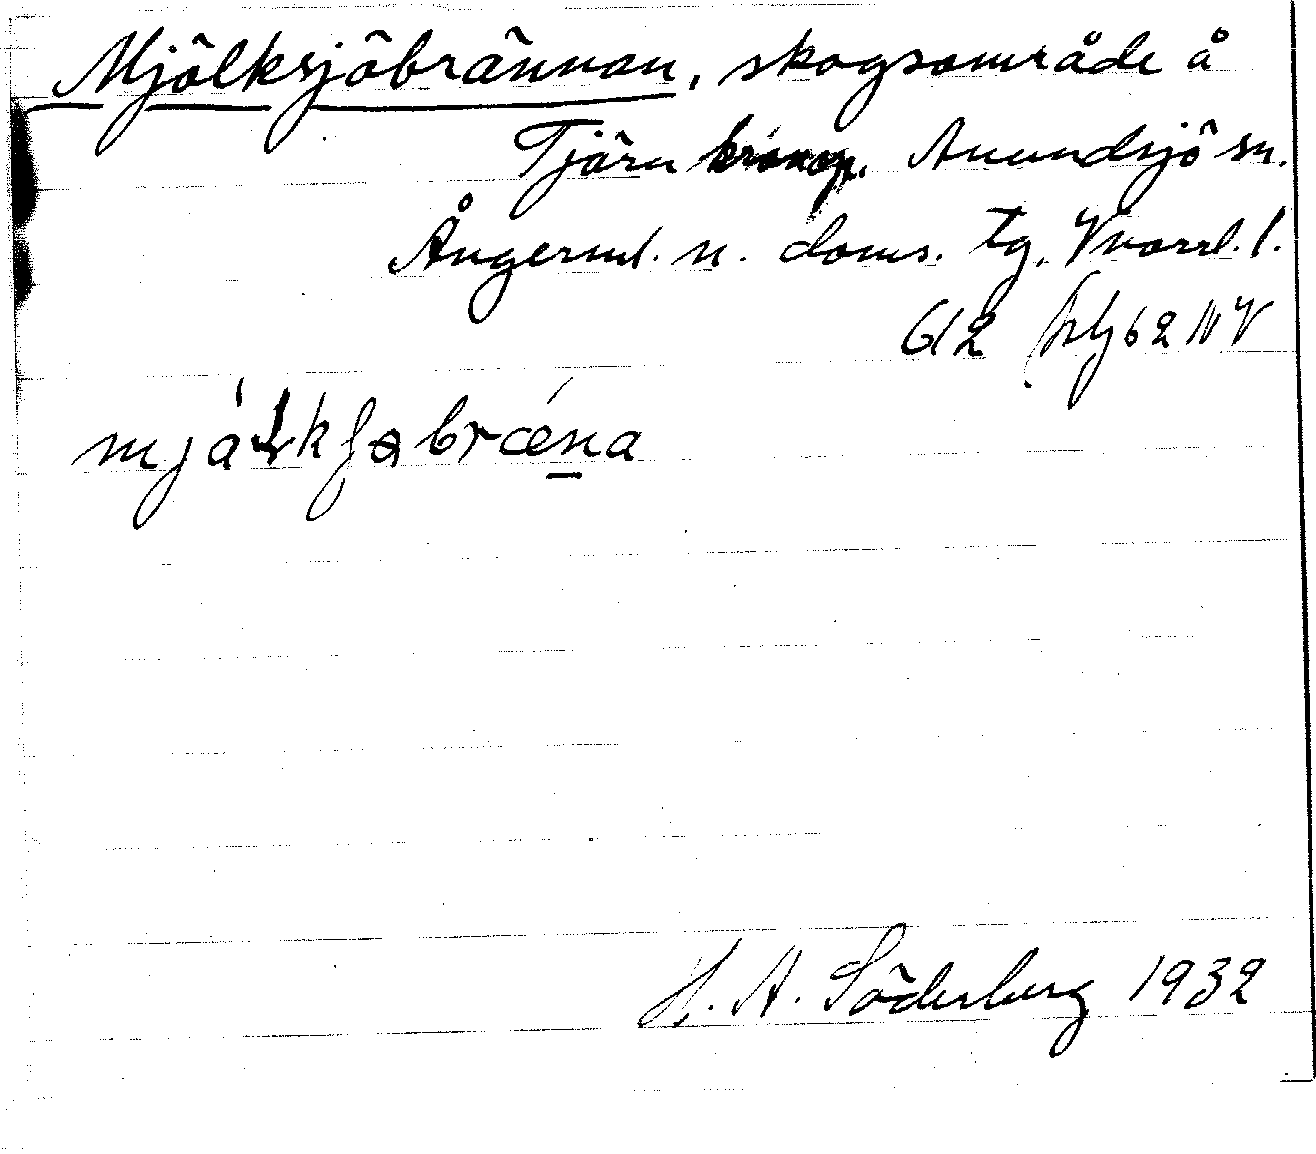 Mjölksjöbrännan, skogsområde å
Tjärn kronop. Anundsjö sn.
Ångerml. n. doms. tg. Vnorrl. l.
G12 62 NV
H. A. Söderberg 1932